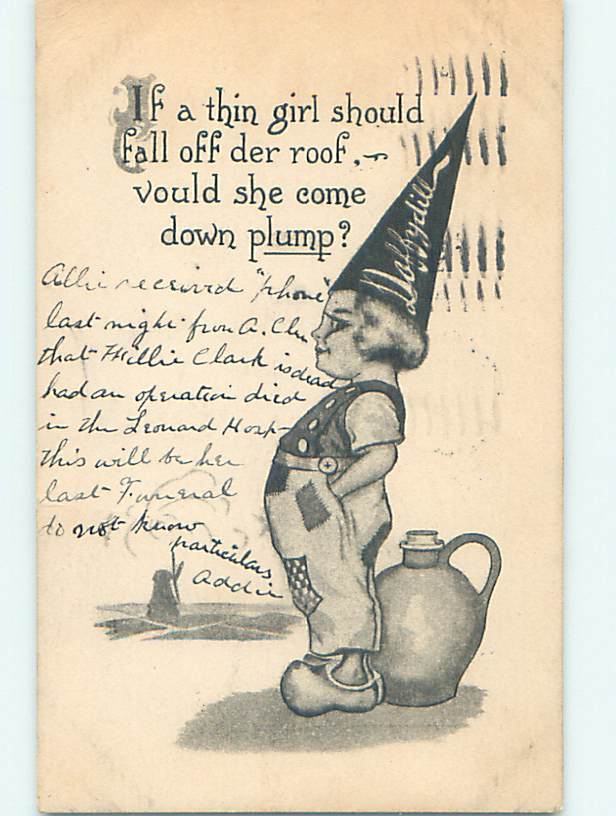 If a thin girl should
fall off der roof,
vould she come
down plump?
Daffydill
Allie received "phone"
last night from A. Clu
that Hillie Clark is dead
had an operation died
in the Leonard Hosp-
this will be her
last Funeral
do not know
particulars
Addie